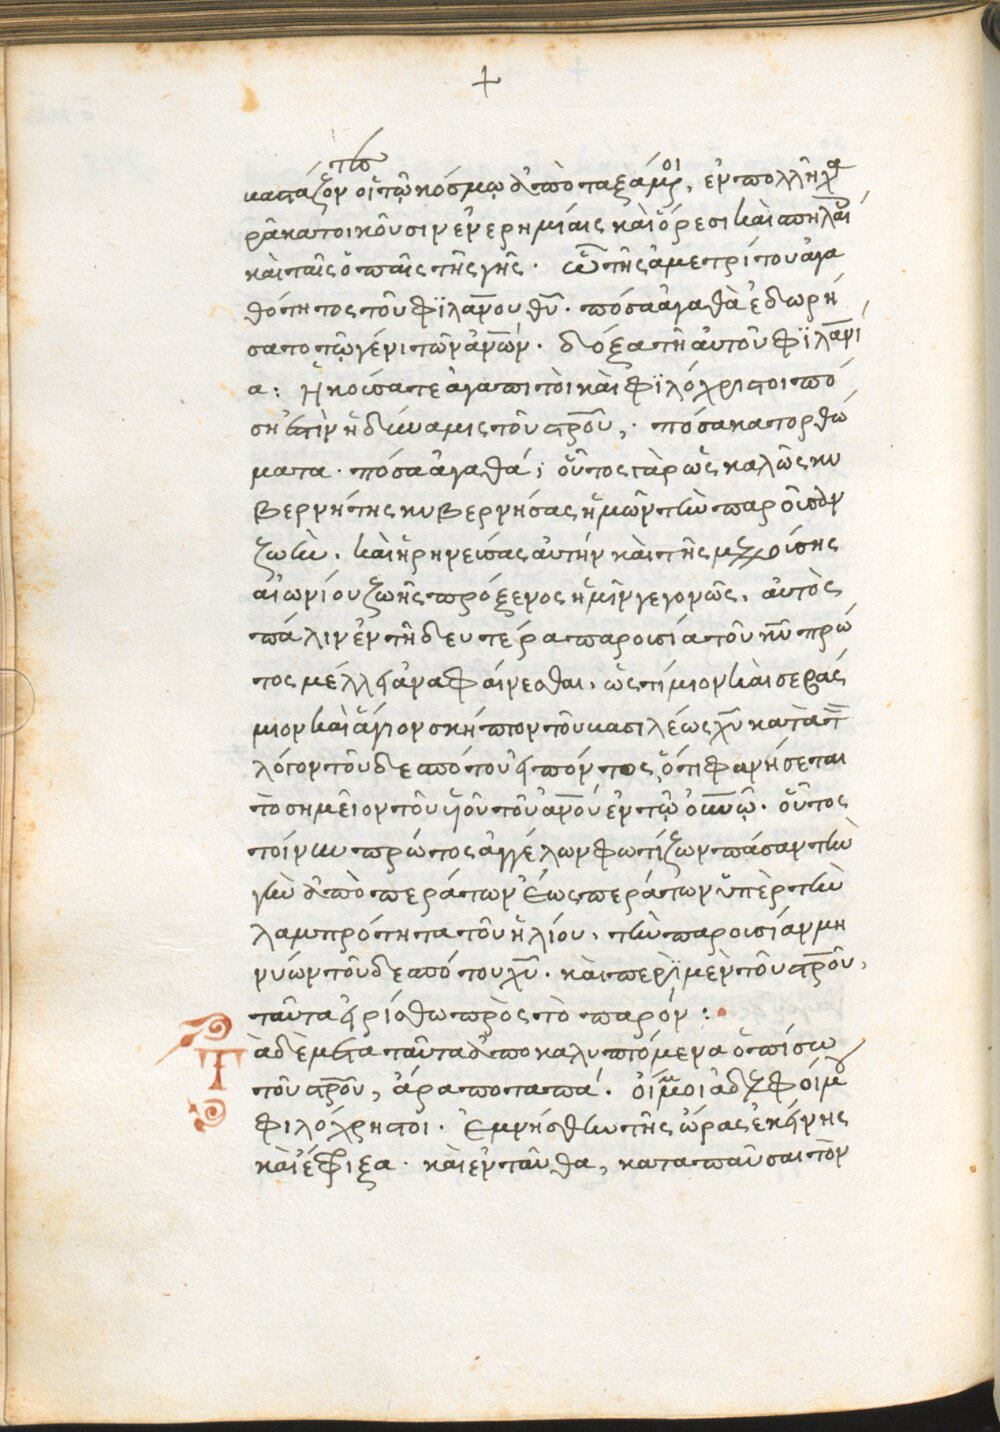 +
κατάζον οἱ τῷ κόσμῳ ἀποταξάμενοι, ἐν πολλῆ χα
ρᾶ κατοικοῦσιν ἐν ἐρημίαις καὶ ὄρεσι καὶ σπηλαί
καὶ ταῖς ὀπαῖς τῆς γῆς. ὢ τῆς ἀμετρίτου ἀγα
θότητος τοῦ φϊλαν̅ου θῦ. πόσα ἀγαθὰ ἐδωρή
σατο τῷ γένι τῶν ἀν̅ων. δόξα τῆ αὐτοῦ φϊλαν̅ι
α: Ἠκούσατε ἀγαπιτοὶ καὶ φϊλόχριστοι πό
ση ἐστὶν ἡ δύναμις τοῦ σρ̅οῦ, πόσα κατορθώ
ματα. πόσα ἀγαθά; οὗτος γὰρ ὡς καλῶς κυ
βερνήτης κυβερνήσας ἡμῶν τὴν παροῦσαν
ζωὴν. καὶ εἰρηνεύσας αὐτήν καὶ τῆς μελλούσης
αἰωνίου ζωῆς πρόξενος ἡμῖν γεγονῶς. αὐτὸς
πάλιν ἐν τῆ δευτέρα παρουσία τοῦ κῦ πρώ
τος μέλλει ἀναφαίνεσθαι. ὡς τίμιον καὶ σεβάς
μιον καὶ ἅγιον σκήπτρον τοῦ βασιλέως χῦ κατὰ τὸ
λόγον τοῦ δεσπότου εἰπόντος, ὅτι φανήσεται
τὸ σημεῖον τοῦ υἱοῦ τοῦ ἀν̅ου ἐν τῷ οὐνῷ. οὗτος
τοίνυν πρῶτος ἀγγέλων φωτίζων πάσαν τὴν
γὴν ἀπὸ περάτων ἕως περάτων ὑπὲρ τὴν
λαμπρότητα τοῦ ἡλίου. τὴν παρουσίαν μη
νύων τοῦ δεσπότου χῦ. καὶ περὶ μὲν τοῦ σρ̅οῦ,
ταῦτα εἰρίσθω πρὸς τὸ παρόν:
Τὰ δὲ μετὰ ταῦτα ἀποκαλυπτόμενα ὀπίσω
τοῦ σρ̅οῦ, ἄρα ποταπά. οἴμμοι ἀδελφοί μου
φιλόχρηστοι. ἐμνήσθην τῆς ὥρας ἐκείνης
καὶ ἔφριξα. καὶ ἐνταῦθα, καταπαῦσαι τὸν